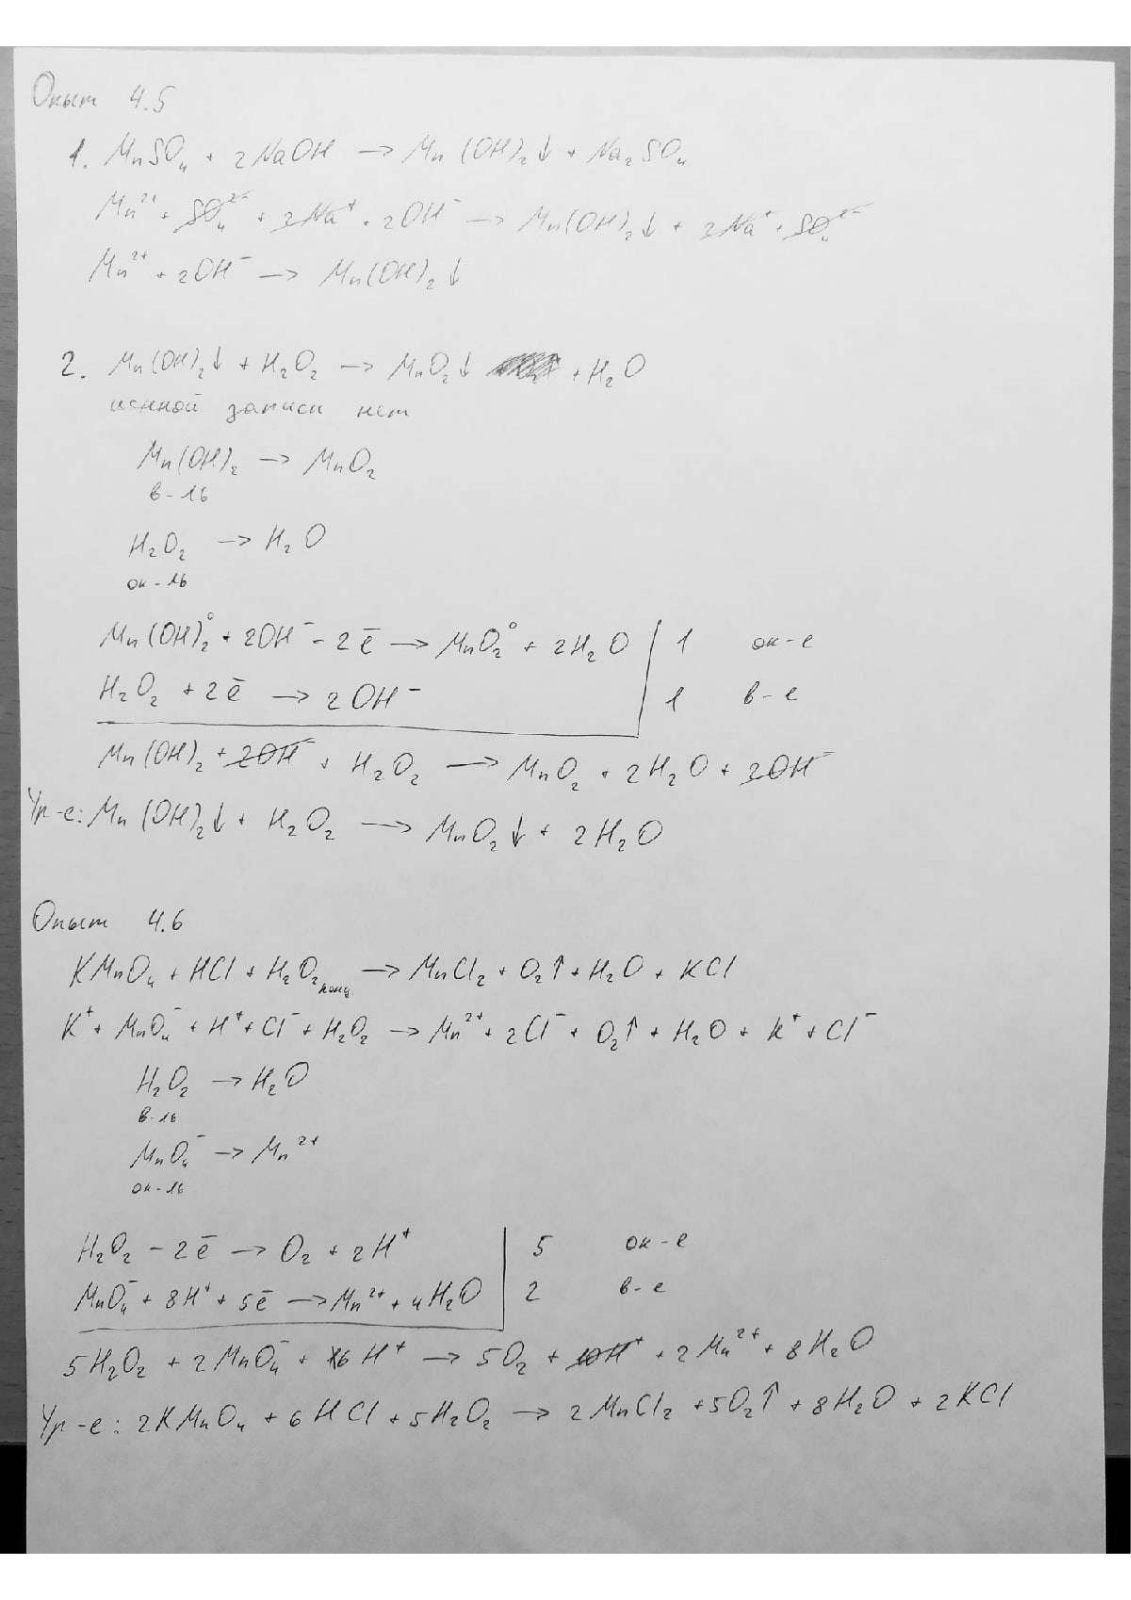 Опыт 4.5
1. MnSO₄ + 2NaOH → Mn(OH)₂↓ + Na₂SO₄
Mn²⁺ + SO₄²⁻ + 2Na⁺ + 2OH⁻ → Mn(OH)₂↓ + 2Na⁺ + SO₄²⁻
Mn²⁺ + 2OH⁻ → Mn(OH)₂↓
2. Mn(OH)₂↓ + H₂O₂ → MnO₂↓ + H₂O
ионной записи нет
Mn(OH)₂ → MnO₂
в-ль
H₂O₂ → H₂O
ок-ль
Mn(OH)₂⁰ + 2OH⁻ - 2ē → MnO₂⁰ + 2H₂O | 1 ок-е
H₂O₂ + 2ē → 2OH⁻ | 1 в-е
Mn(OH)₂ + 2OH⁻ + H₂O₂ → MnO₂ + 2H₂O + 2OH⁻
Ур-е: Mn(OH)₂↓ + H₂O₂ → MnO₂↓ + 2H₂O
Опыт 4.6
KMnO₄ + HCl + H₂O₂ конц → MnCl₂ + O₂↑ + H₂O + KCl
K⁺ + MnO₄⁻ + H⁺ + Cl⁻ + H₂O₂ → Mn²⁺ + 2Cl⁻ + O₂↑ + H₂O + K⁺ + Cl⁻
H₂O₂ → H₂O
в-ль
MnO₄⁻ → Mn²⁺
ок-ль
H₂O₂ - 2ē → O₂ + 2H⁺ | 5 ок-е
MnO₄⁻ + 8H⁺ + 5ē → Mn²⁺ + 4H₂O | 2 в-е
5H₂O₂ + 2MnO₄⁻ + 6H⁺ → 5O₂ + 10H⁺ + 2Mn²⁺ + 8H₂O
Ур-е: 2KMnO₄ + 6HCl + 5H₂O₂ → 2MnCl₂ + 5O₂↑ + 8H₂O + 2KCl